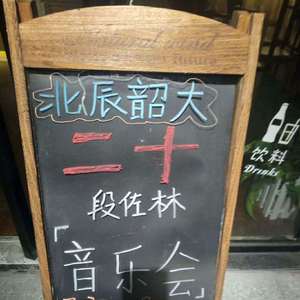 北辰韶大
二十
段佐林
「音乐会」
饮料
Drinks